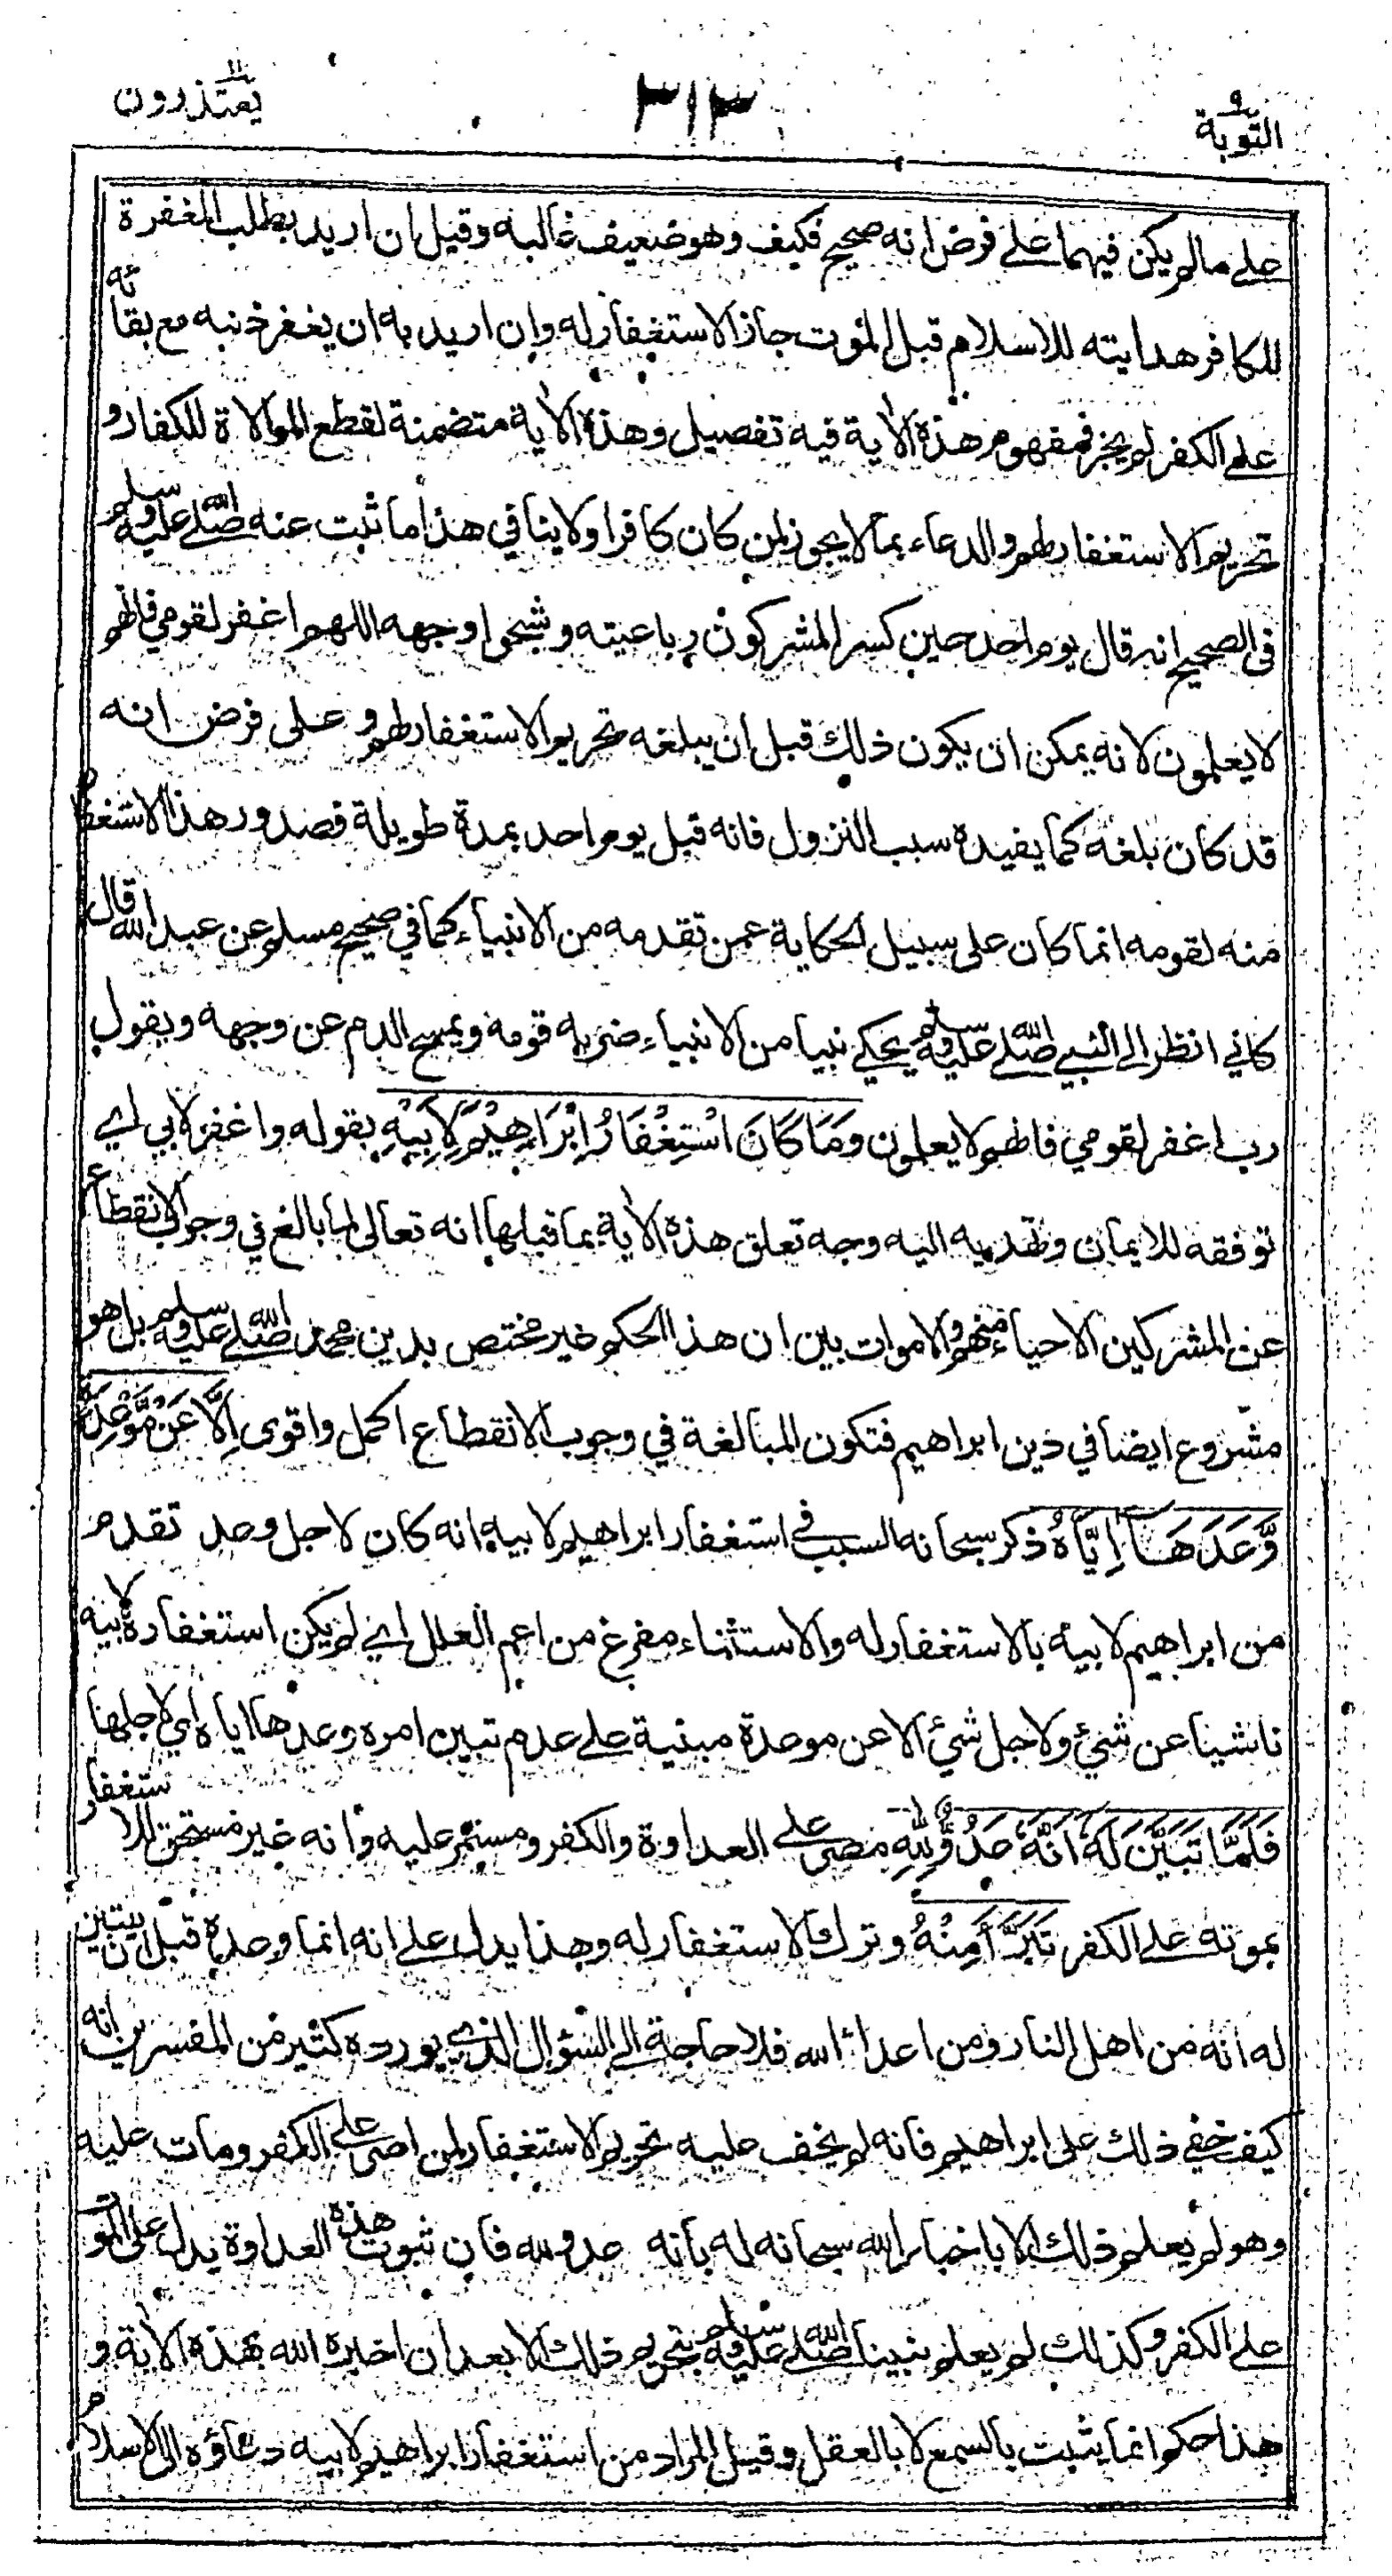 التوبة ٩
٣١٣
يعتذرون ١١
على ما لم يكن فيهما على فرض انه صحيح فكيف وهو ضعيف غالبه وقيل ان اريد بطلب المغفرة
للكافر هدايته للاسلام قبل الموت جاز الاستغفار له وان اريد به ان يغفر ذنبه مع بقائه
على الكفر لم يجز فمفهوم هذه الاٰية فيه تفصيل وهذه الاٰية متضمنة لقطع الموالاة للكفار و
تحريم الاستغفار لهم والدعاء بما لا يجوز لمن كان كافرا ولا ينافي هذا ما ثبت عنه صلى الله عليه وسلم
في الصحيح انه قال يوم احد حين كسر المشركون رباعيته وشجوا وجهه اللهم اغفر لقومي فانهم
لا يعلمون لانه يمكن ان يكون ذلك قبل ان يبلغه تحريم الاستغفار لهم وعلى فرض انه
قد كان بلغه كما يفيده سبب النزول فانه قبل يوم احد بمدة طويلة فصدور هذا الاستغفار
منه لقومه انما كان على سبيل الحكاية عمن تقدمه من الانبياء كما في صحيح مسلم عن عبد الله قال
كاني انظر الى النبي صلى الله عليه وسلم يحكي نبيا من الانبياء ضربه قومه ويمسح الدم عن وجهه ويقول
رب اغفر لقومي فانهم لا يعلمون وَمَا كَانَ اسْتِغْفَارُ اِبْرَاهِيْمَ لِاَبِيْهِ بقوله واغفر لابي اي
توفقه للايمان وتهديه اليه وجه تعلق هذه الاٰية بما قبلها انه تعالى لما بالغ في وجوب الانقطاع
عن المشركين الاحياء منهم والاموات بين ان هذا الحكم غير مختص بدين محمد صلى الله عليه وسلم بل هو
مشروع ايضا في دين ابراهيم فتكون المبالغة في وجوب الانقطاع اكمل واقوى اِلَّا عَنْ مَّوْعِدَةٍ
وَّعَدَهَآ اِيَّاهُ ذكر سبحانه السبب في استغفار ابراهيم لابيه انه كان لاجل وعد تقدم
من ابراهيم لابيه بالاستغفار له والاستثناء مفرغ من اعم العلل اي لم يكن استغفاره لابيه
ناشيا عن شيئ ولاجل شيئ الا عن موعدة مبنية على عدم تبين امره وعدها اياه اي لاجلها
فَلَمَّا تَبَيَّنَ لَهٗٓ اَنَّهٗ عَدُوٌّ لِّلّٰهِ مصر على العداوة والكفر ومستمر عليه وانه غير مستحق للاستغفار
بموته على الكفر تَبَرَّاَ مِنْهُ وترك الاستغفار له وهذا يدل على انه انما وعده قبل ان يتبين
له انه من اهل النار ومن اعداء الله فلا حاجة الى السؤال الذي يورده كثير من المفسرين انه
كيف خفي ذلك على ابراهيم فانه لم يخف عليه تحريم الاستغفار لمن اصر على الكفر ومات عليه
وهو لم يعلم ذلك الا باخبار الله سبحانه له بانه عدو لله فان ثبوت هذه العداوة يدل على الموت
على الكفر وكذلك لم يعلم نبينا صلى الله عليه وسلم بتحريم ذلك الا بعد ان اخبره الله بهذه الاٰية و
هذا حكم انما يثبت بالسمع لا بالعقل وقيل المراد من استغفار ابراهيم لابيه دعاؤه الى الاسلام